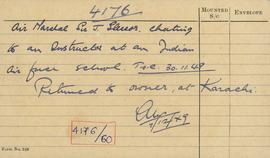 4176
MOUNTED S/C
ENVELOPE
Air Marshal Sir J. Slessor, chatting
to an Instructor at an Indian
Air force school. T.S.C. 30.11.49
Returned to owner, at Karachi.
7/12/49
4176/60
FORM No.